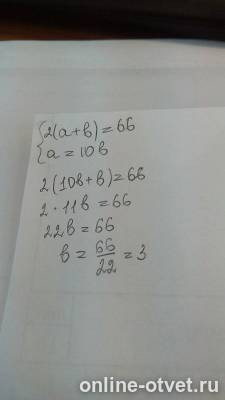 {2(a+b)=66
{a=10b
2(10b+b)=66
2·11b=66
22b=66
b=66/22=3
online-otvet.ru